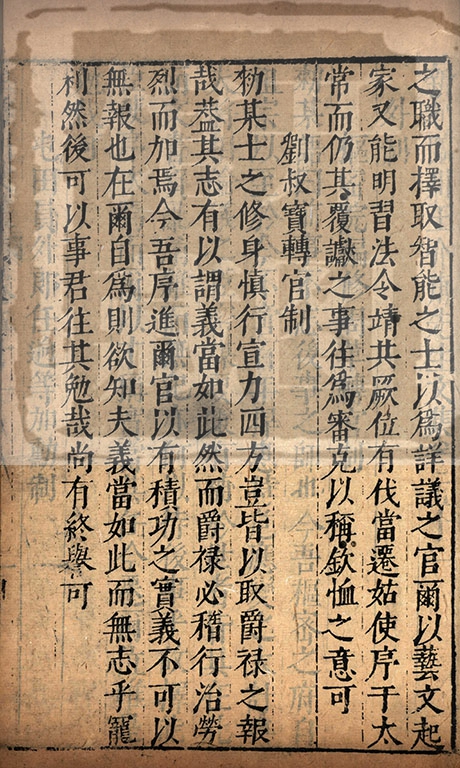 之職而擇取智能之士以為詳議之官爾以藝文起
家又能明習法令靖共厥位有伐當遷姑使序于太
常而仍其覆讞之事往為審克以稱欽恤之意可
劉叔寶轉官制
勑某士之修身慎行宣力四方豈皆以取爵祿之報
哉葢其志有以謂義當如此然而爵祿必稽行治勞
烈而加焉今吾序進爾官以有積功之實義不可以
無報也在爾自為則欲知夫義當如此而無志乎寵
利然後可以事君往其勉哉尚有終譽可